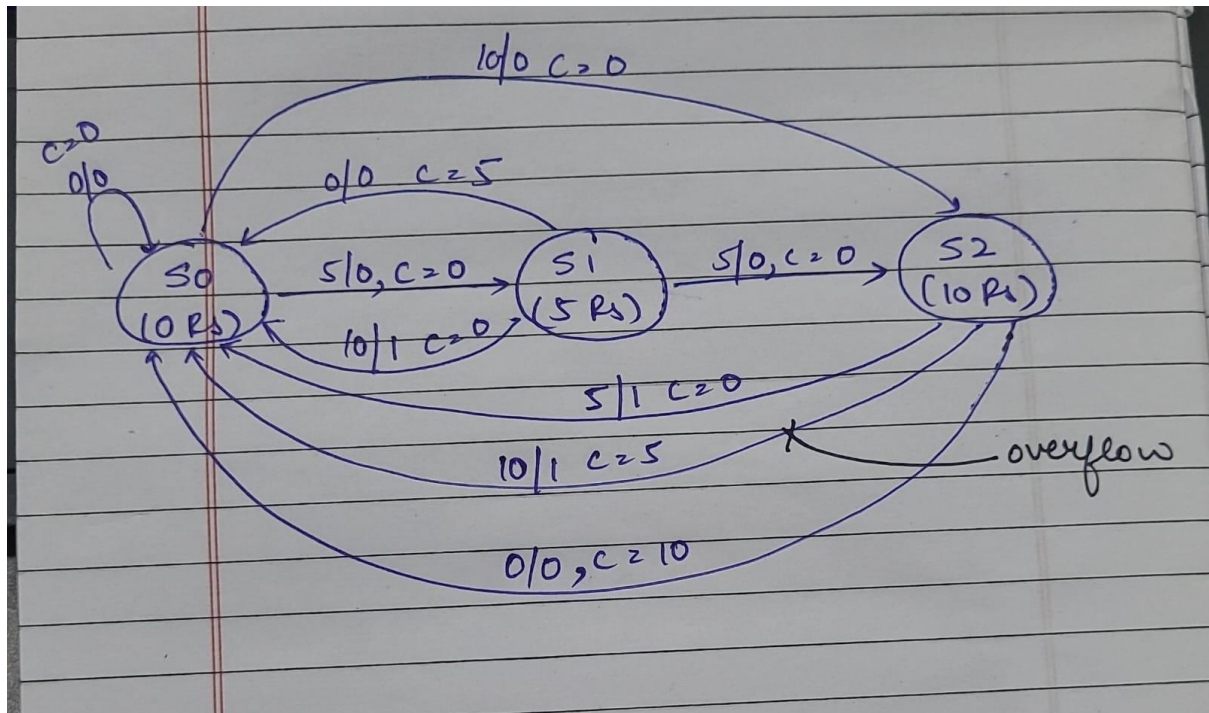 10/0 C=0
C=0
0/0
0/0 C=5
S0
(0 Rs)
5/0, C=0
S1
(5 Rs)
5/0, C=0
S2
(10 Rs)
10/1 C=0
5/1 C=0
10/1 C=5
overflow
0/0, C=10